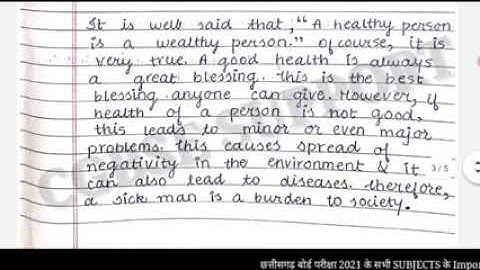 It is well said that, "A healthy person
is a wealthy person." Of course, it is
very true. A good health is always
a great blessing. This is the best
blessing anyone can give. However, if
health of a person is not good,
this leads to minor or even major
problems. This causes spread of
negativity in the environment & it 3/5
can also lead to diseases. Therefore,
a sick man is a burden to society.
छत्तीसगढ़ बोर्ड परीक्षा 2021 के सभी SUBJECTS के Impor